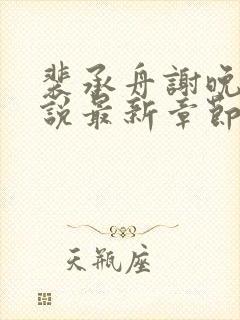 裴承舟謝晚
說最新章節
天瓶座